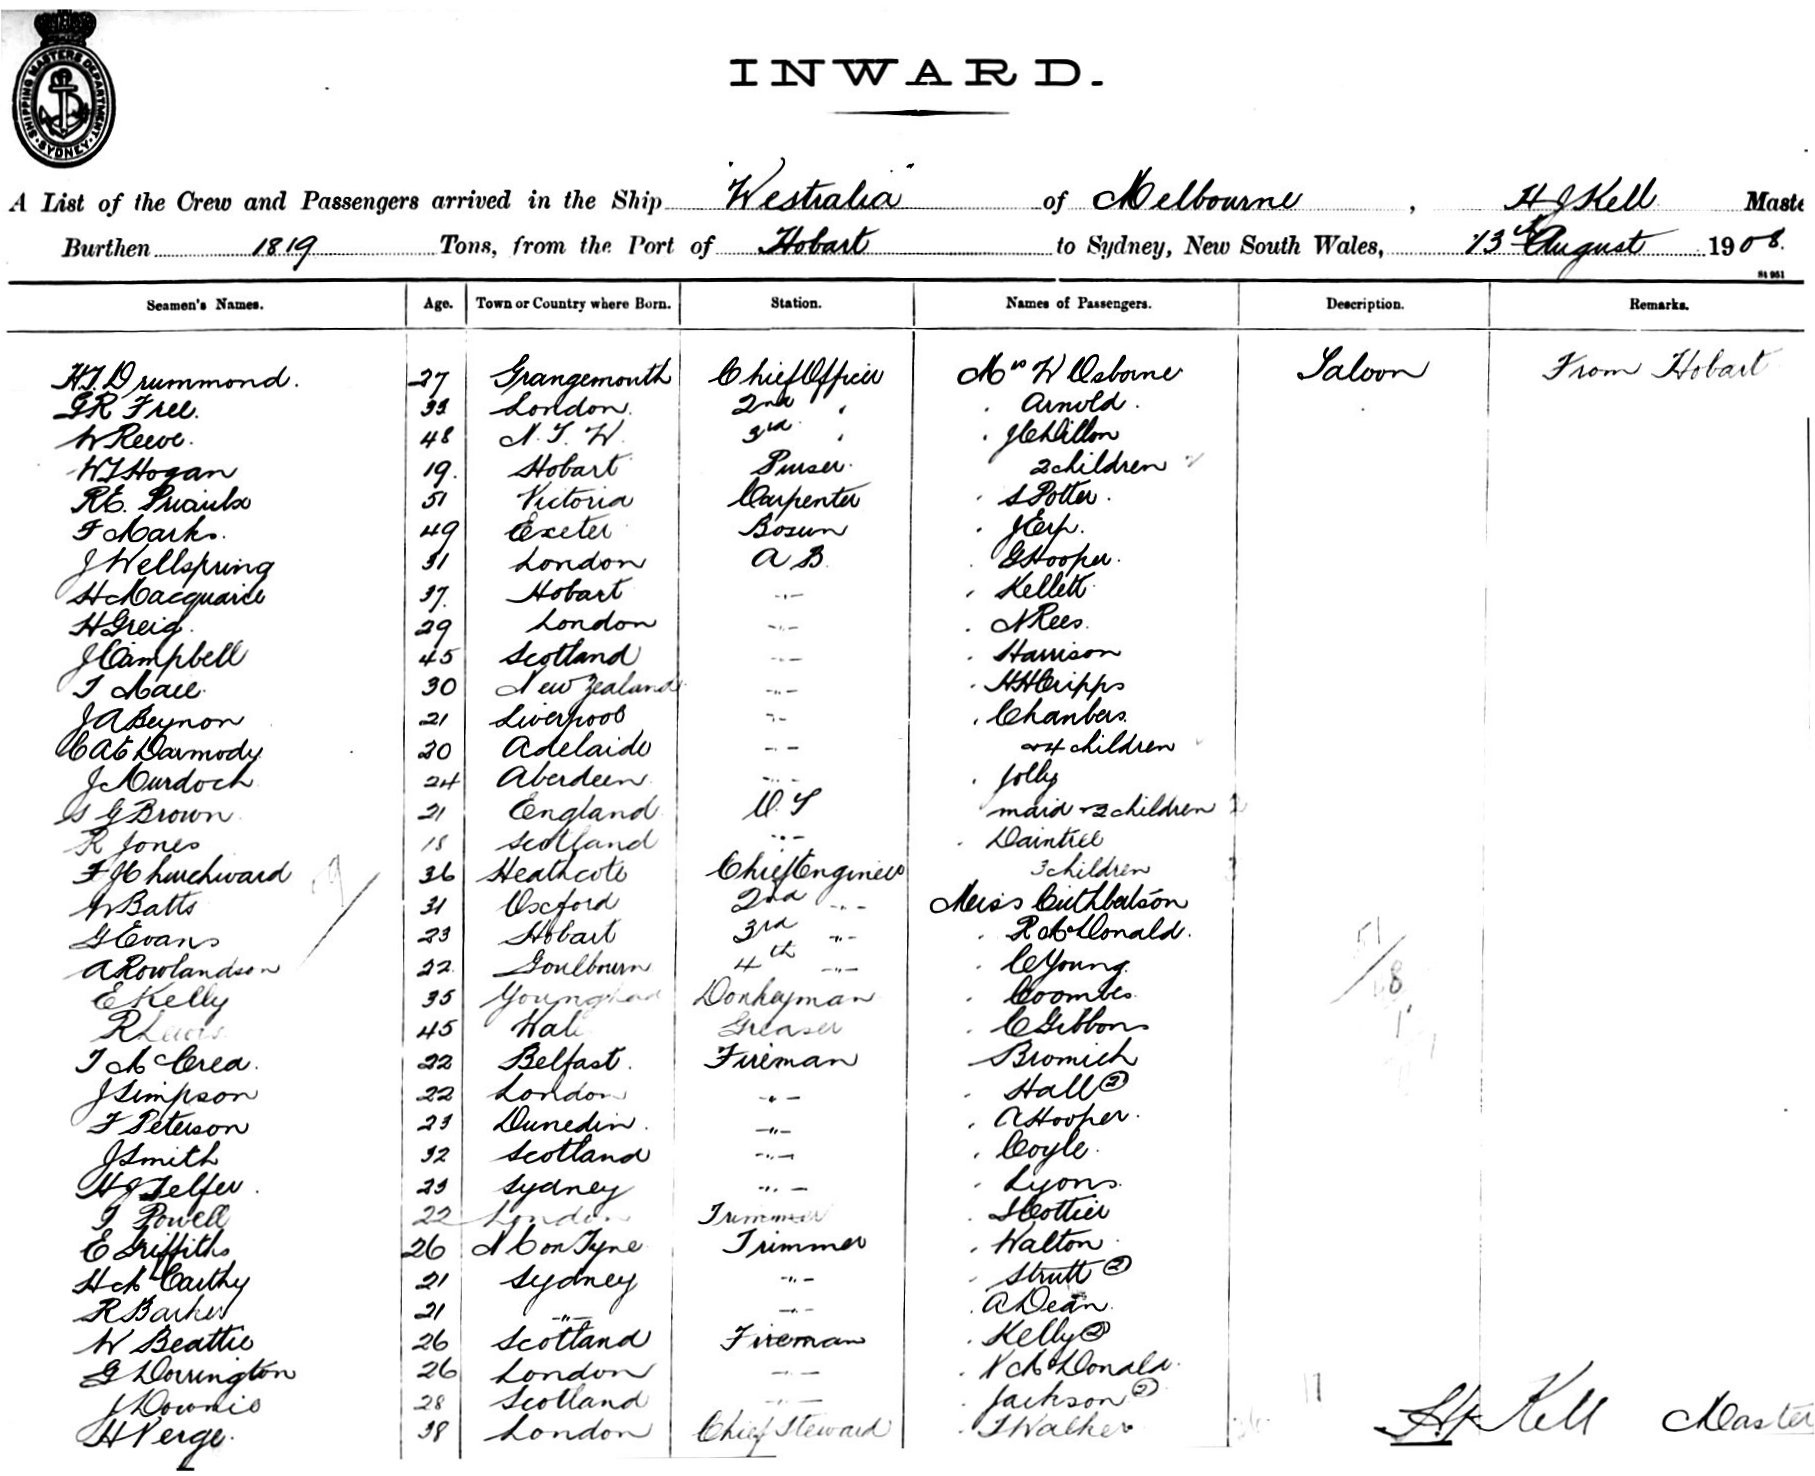 SHIPPING MASTERS DEPARTMENT · SYDNEY ·
INWARD.
A List of the Crew and Passengers arrived in the Ship "Westralia" of Melbourne, H J Kell Maste
Burthen 1819 Tons, from the Port of Hobart to Sydney, New South Wales, 13th August 1908.
St 961
Seamen's Names. Age. Town or Country where Born. Station. Names of Passengers. Description. Remarks.
H.T. Drummond. 27 Grangemouth Chief Officer Mrs W Osborne Saloon From Hobart
G R Free. 33 London. 2nd " " Arnold.
W Reeve. 48 N.S.W. 3rd " " J C Dillon
W T Hogan 19. Hobart Purser. 2 children
R E. Priaulx 51 Victoria Carpenter " S Potter.
F Marks. 49 Exeter Bosun " J Erp.
J Wellspring 31 London A B. " G Hooper.
H Macquarie 37. Hobart -"- " Kellett
H Greig. 29 London -"- " N Rees.
J Campbell 45 Scotland -"- " Harrison
T Mace 30 New Zealand -"- " H H Cripps
J A Beynon 21 Liverpool -"- " Chambers.
C A E Darmody 20 Adelaide -"- & 4 children
J Murdoch 24 Aberdeen -"- " Jolly
S G Brown. 21 England O.S maid & 2 children 2
R Jones 18 Scotland -"- " Daintree
F J Churchward 36 Heathcote Chief Engineer 3 children 3
W Batts 31 Oxford 2nd -"- Miss Cuthbertson
G Evans 23 Hobart 3rd -"- " R McDonald.
A Rowlandson 22. Goulbourn 4th -"- " C Young.
E Kelly 35 Younghad Donkeyman " Coombes.
R Lewis 45 Wal Greaser " C Gibbons
T McCrea. 22 Belfast. Fireman Bromich
J Simpson 22 London -"- " Hall (2)
F Peterson 23 Dunedin. -"- " A Hooper.
J Smith 32 Scotland -"- " Coyle.
H J Telfer. 23 Sydney -"- " Lyons.
T Powell 22 London Trimmer " Cottier
E Griffiths 26 N C on Tyne Trimmer " Walton
H McCarthy 21 Sydney -"- " Strutt (2)
R Barker 21 -"- -"- " A Dean.
W Beattie 26 Scotland Fireman " Kelly (2)
G Dorrington 26 London -"- " N McDonald.
J Downie 28 Scotland -"- " Jackson (2)
H Verge. 38 London Chief Steward " T Walker
H J Kell Master